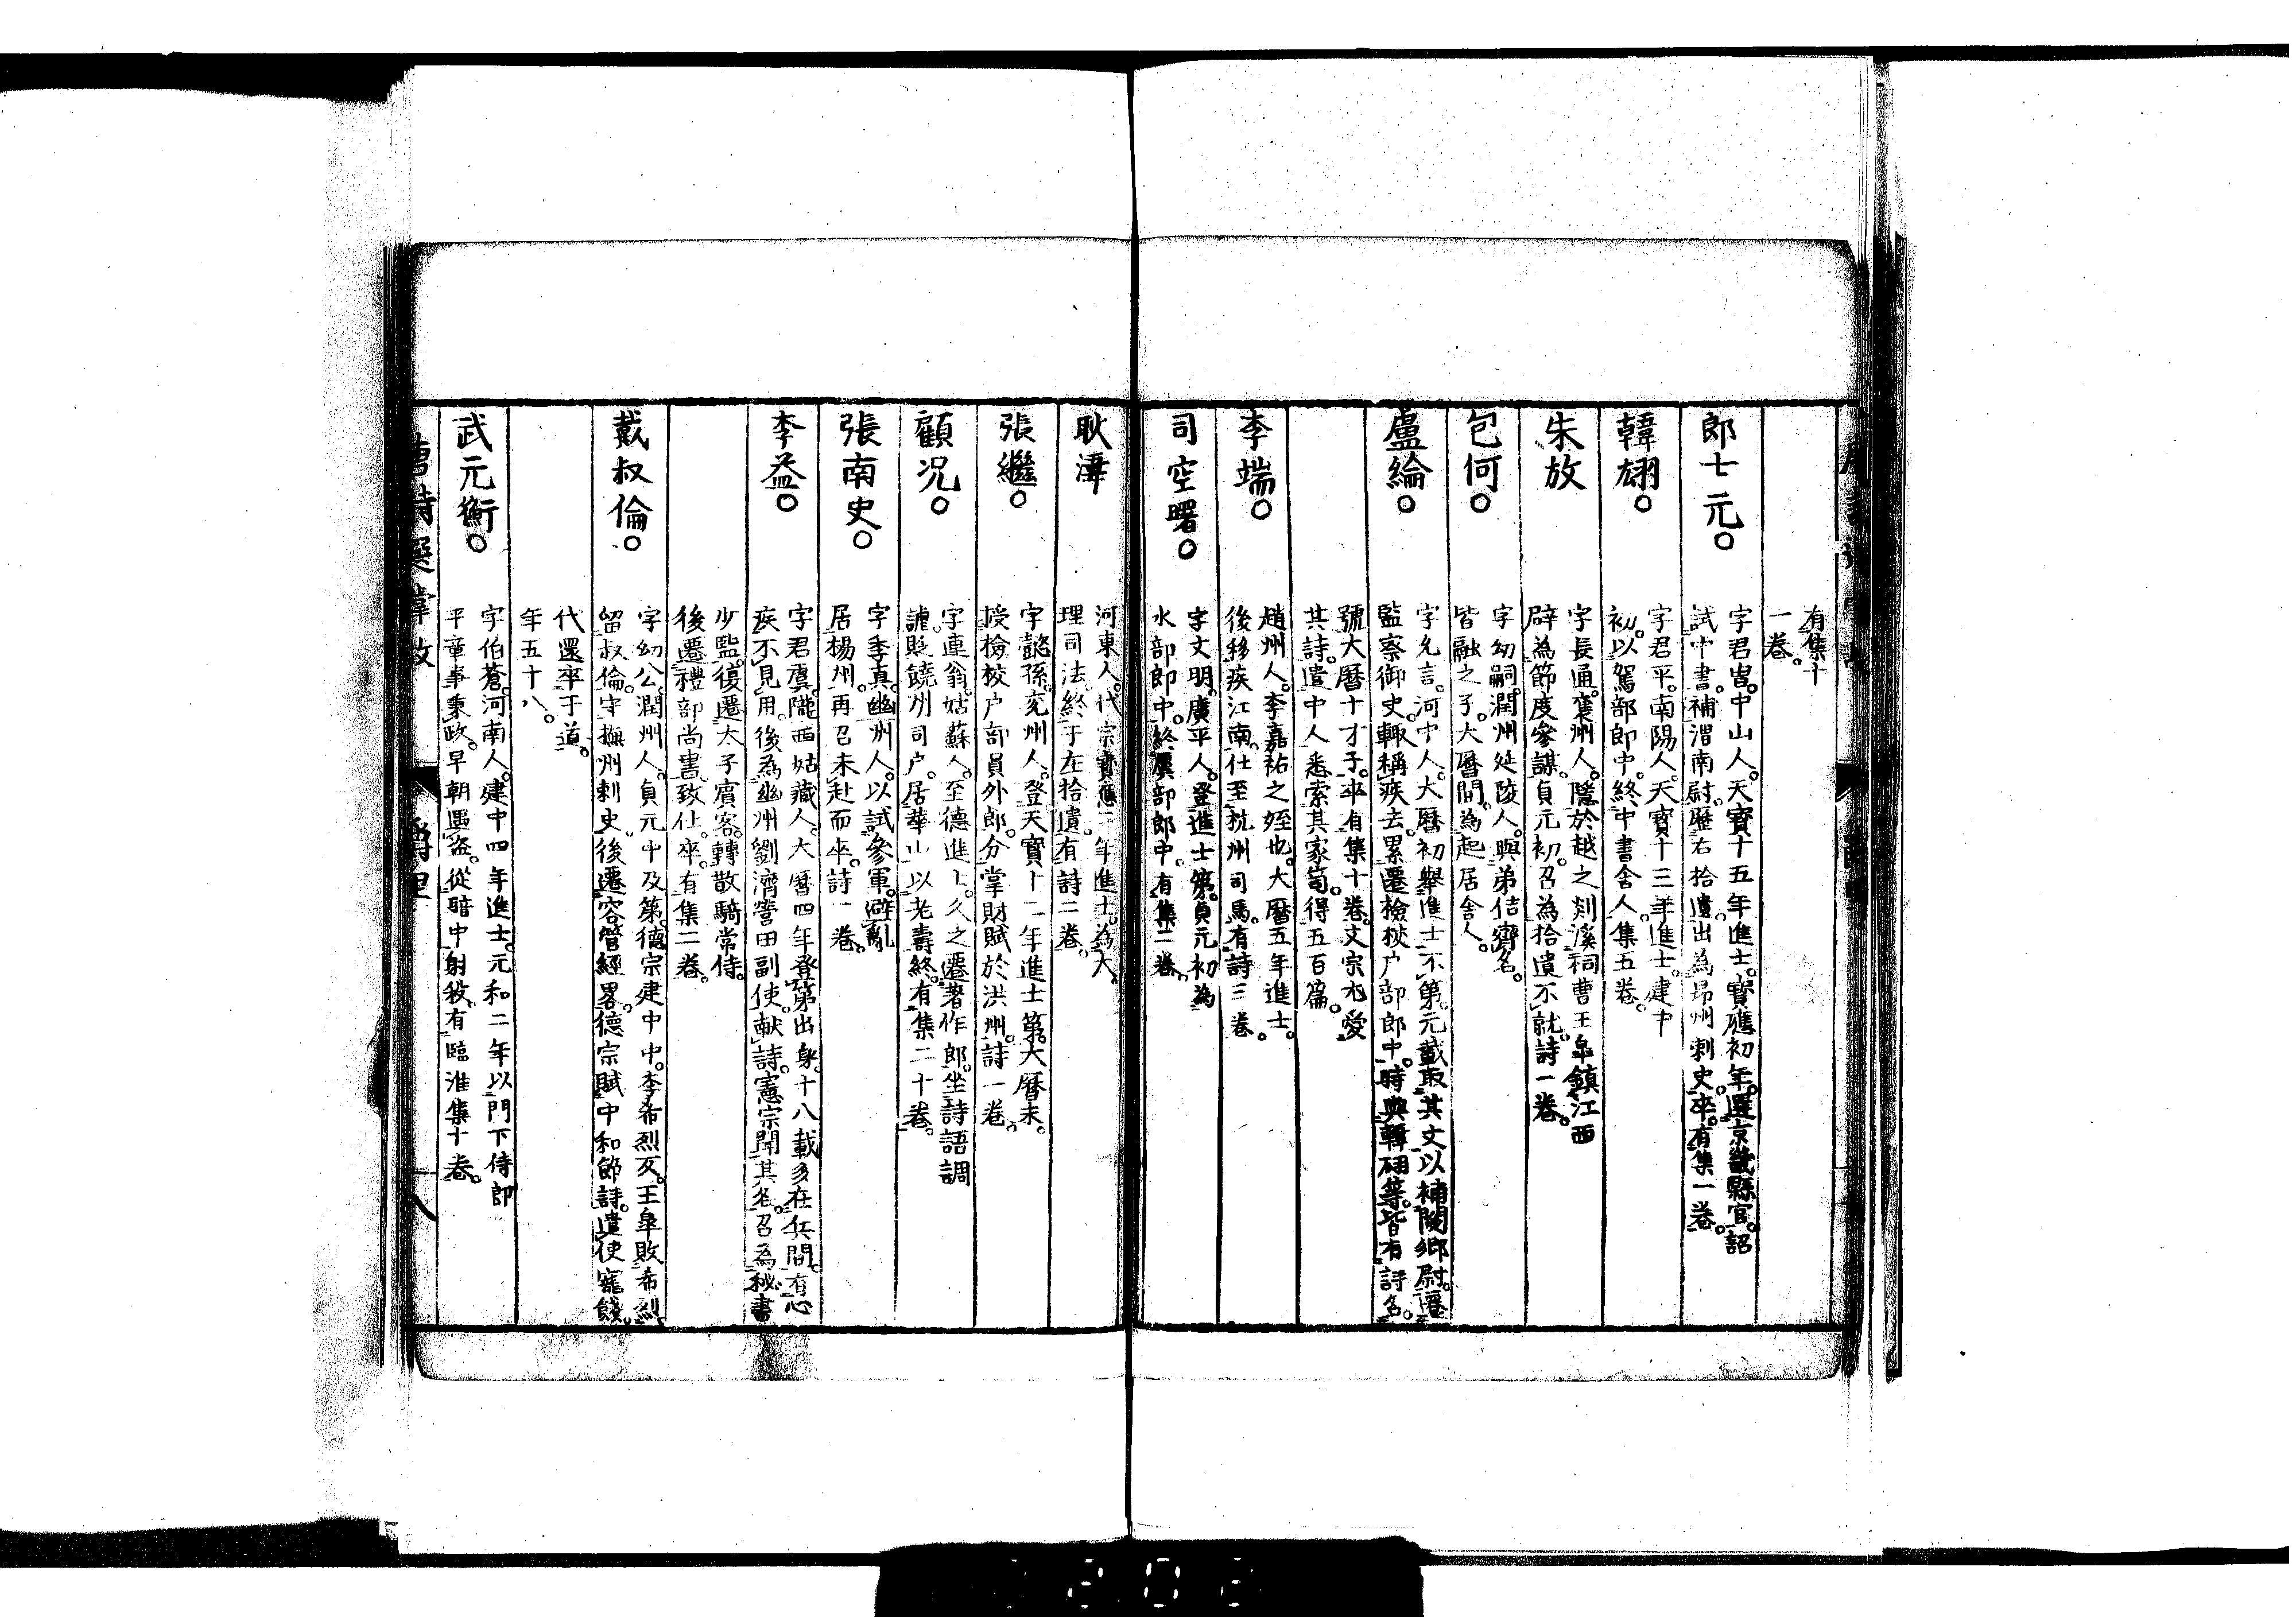 有集十
一卷。
郎士元。
字君胄。中山人。天寶十五年進士。寶應初年。選京畿縣官。詔
試中書。補渭南尉。歷右拾遺。出為郢州刺史。卒。有集一卷。
韓翃。
字君平。南陽人。天寶十三年進士。建中
初。以駕部郎中。終中書舍人。集五卷。
朱放
字長通。襄州人。隱於越之剡溪。祠曹王皐鎮江西
辟為節度參謀。貞元初。召為拾遺不就。詩一卷。
包何。
字幼嗣。潤州延陵人。與弟佶齊名。
皆融之子。大曆間。為起居舍人。
盧綸。
字允言。河中人。大曆初舉進士不第。元載取其文以補閿鄉尉。遷
監察御史。輒稱疾去。累遷檢校户部郎中。時與韓翃等。皆有詩名。
號大曆十才子。卒有集十卷。文宗尤愛
其詩。遣中人悉索其家笥。得五百篇。
李端。
趙州人。李嘉祐之姪也。大曆五年進士。
後移疾江南。仕至杭州司馬。有詩三卷。
司空曙。
字文明。廣平人。登進士第。貞元初為
水部郎中。終虞部郎中。有集二卷。
耿湋
河東人。代宗寶應二年進士。為大
理司法。終于左拾遺。有詩二卷。
張繼。
字懿孫。兖州人。登天寶十二年進士第。大曆末。
授檢校户部員外郎。分掌財賦於洪州。詩一卷。
顧况。
字逋翁。姑蘇人。至德進士。久之遷著作郎。坐詩語調
謔。貶饒州司户。居華山以老壽終。有集二十卷。
張南史。
字季真。幽州人。以試參軍。避亂
居楊州。再召未赴而卒。詩一卷。
李益。
字君虞。隴西姑藏人。大曆四年登第。出身十八載多在兵間。有心
疾不見用。後為幽州劉濟營田副使。献詩。憲宗聞其名。召為秘書
少監。復遷太子賓客。轉散騎常侍。
後遷禮部尚書。致仕。卒。有集二卷。
戴叔倫。
字幼公。潤州人。貞元中及第。德宗建中中。李希烈反。王皐敗希烈。
留叔倫。守撫州刺史。後遷容管經畧。德宗賦中和節詩。遣使寵餞。
代還卒于道。
年五十八。
武元衡。
字伯蒼。河南人。建中四年進士。元和二年以門下侍郎
平章事秉政。早朝遇盗。從暗中射殺。有臨淮集十卷。
唐詩選彙改 爵里 八